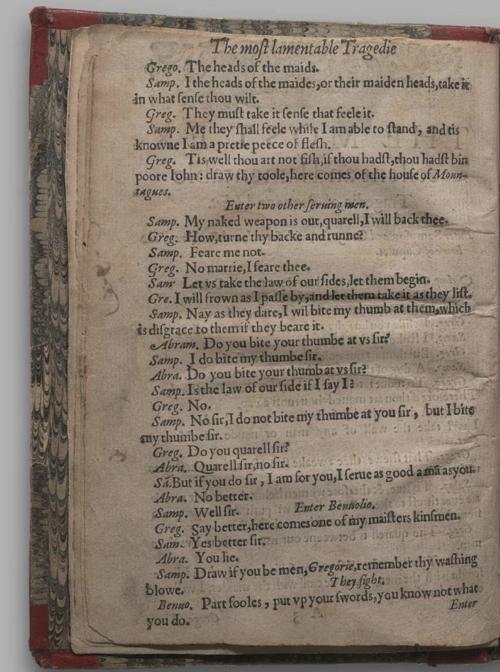 The most lamentable Tragedie
Grego. The heads of the maids.
Samp. I the heads of the maides, or their maiden heads, take it
in what sense thou wilt.
Greg. They must take it sense that feele it.
Samp. Me they shall feele while I am able to stand, and tis
knowne I am a pretie peece of flesh.
Greg. Tis well thou art not fish, if thou hadst, thou hadst bin
poore Iohn: draw thy toole, here comes of the house of Moun-
tagues.
Enter two other seruing men.
Samp. My naked weapon is out, quarell, I will back thee.
Greg. How, turne thy backe and runne?
Samp. Feare me not.
Greg. No marrie, I feare thee.
Sam. Let vs take the law of our sides, let them begin.
Gre. I will frown as I passe by, and let them take it as they list.
Samp. Nay as they dare, I wil bite my thumb at them, which
is disgrace to them if they beare it.
Abram. Do you bite your thumbe at vs sir?
Samp. I do bite my thumbe sir.
Abra. Do you bite your thumb at vs sir?
Samp. Is the law of our side if I say I?
Greg. No.
Samp. No sir, I do not bite my thumbe at you sir, but I bite
my thumbe sir.
Greg. Do you quarell sir?
Abra. Quarell sir, no sir.
Sā. But if you do sir, I am for you, I serue as good a mā as you.
Abra. No better.
Samp. Well sir. Enter Benuolio.
Greg. Say better, here comes one of my maisters kinsmen.
Sam. Yes better sir.
Abra. You lie.
Samp. Draw if you be men, Gregorie, remember thy washing
blowe. They fight.
Benuo. Part fooles, put vp your swords, you know not what
you do. Enter